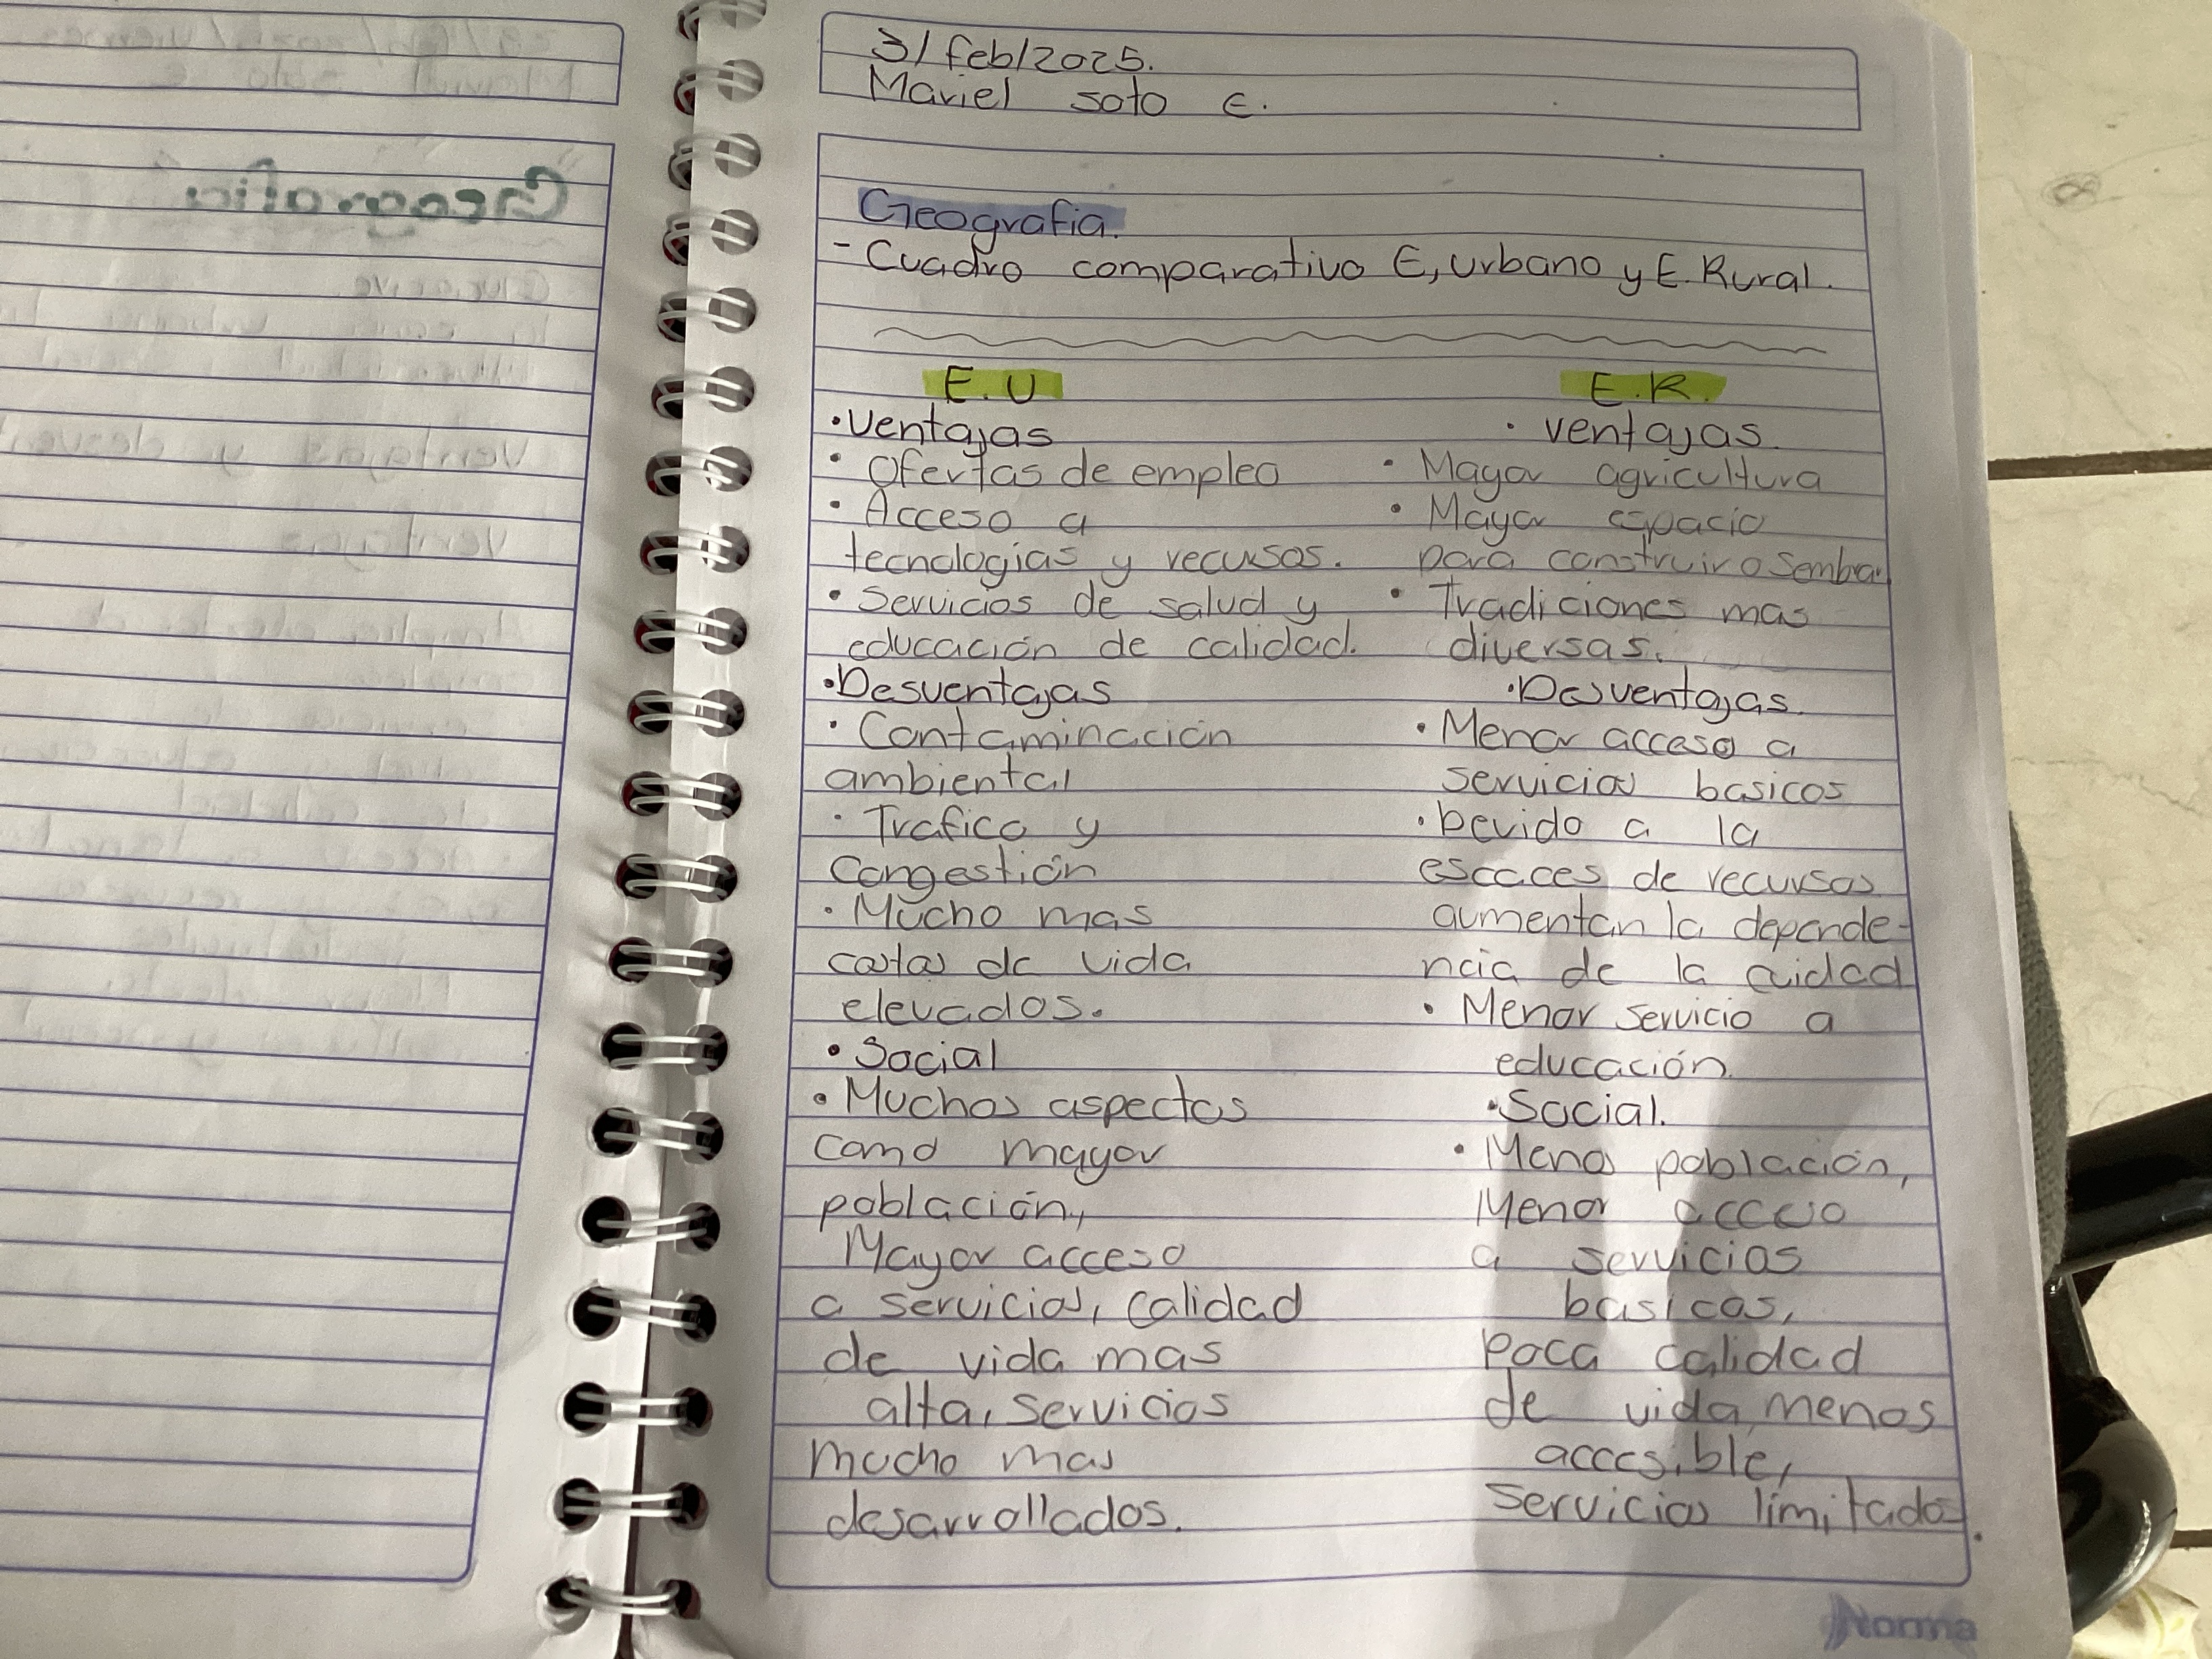 3/feb/2025.
Mariel soto E.
Geografia.
- Cuadro comparativo E, urbano y E. Rural.
E. U
• Ventajas
• Ofertas de empleo
• Acceso a
tecnologias y recursos.
• Servicios de salud y
educación de calidad.
• Desventajas
• Contaminación
ambiental
• Trafico y
Congestión
• Mucho mas
costos de vida
elevados.
• Social
• Muchos aspectos
como mayor
población,
Mayor acceso
a servicios, calidad
de vida mas
alta, servicios
mucho mas
desarrollados.
E. R.
• ventajas.
• Mayor agricultura
• Mayor espacio
para construir o sembrar
• Tradiciones mas
diversas.
• Desventajas.
• Menor acceso a
servicios basicos
• Devido a la
escaces de recursos
aumentan la depende-
ncia de la cuidad
• Menor servicio a
educación.
• Social.
• Menos población,
Menor acceso
a servicios
basicos,
Poca calidad
de vida, menos
accesible,
servicios limitados.
Norma